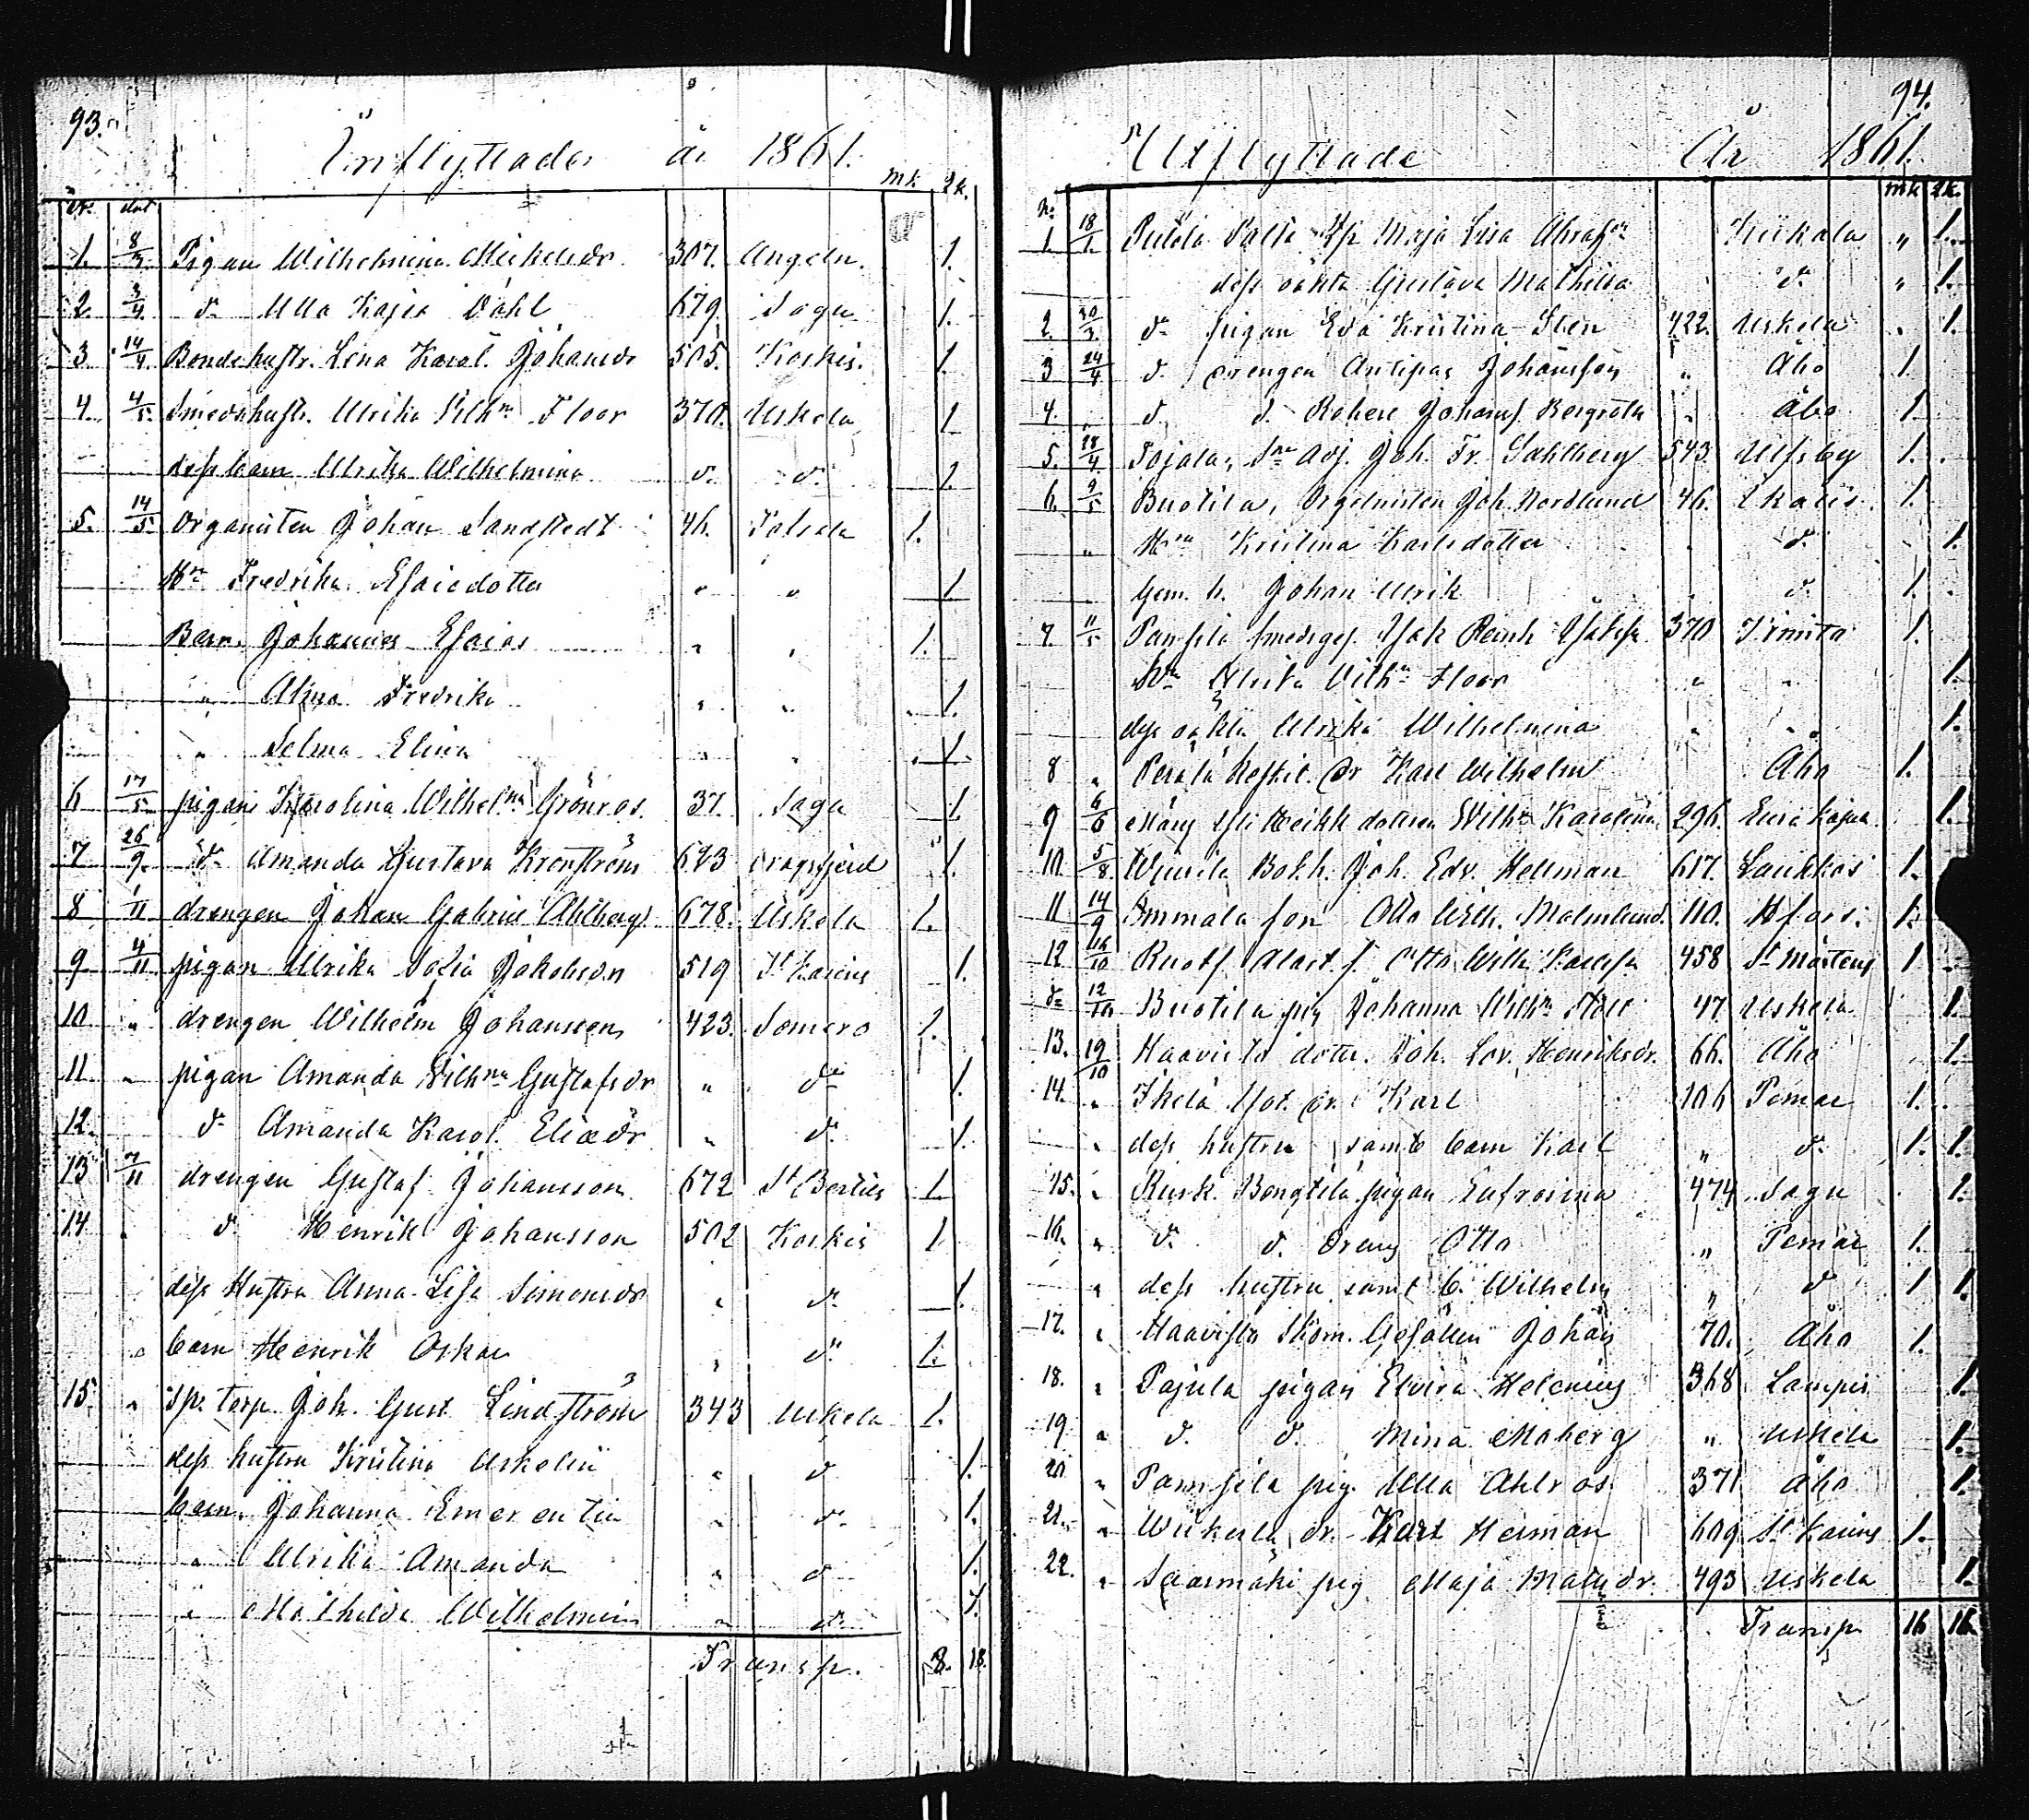 93.
Inflyttade år 1861.
mk. qk.
nr. dat
1. 8/3 Pigan Wilhelmina Mickelsdr 307. Angeln. 1.
2. 3/4 d:o Ulla Kajsa Dahl 679. Sagu 1.
3. 14/4 Bondehustr. Lena Karol. Johansdr 505. Koskis. 1.
4. 4/5 Smedshustr. Ulrika Vilhna Floor 370. Uskela 1
dess barn Ulrika Wilhelmina d:o d:o 1
5. 14/5 Organisten Johan Sandstedt 46. 1.
Hn Fredrika Esaiedotter " " 1.
Barn. Johannes Esaias " " 1.
" Alma Fredrika " " 1.
" Selma Elina " " 1.
6 17/5 pigan Karolina Wilhelna Grönros. 37. Sagu 1.
7 26/9 d:o Amanda Gustava Kronström 623 Dragsfjerd 1.
8 1/11 drengen Johan Gabriel Ahlberg 678. Uskela 1.
9 4/11 pigan Ulrika Sofia Jakobsdr 519 St Karins 1.
10 " drengen Wilhelm Johansson 423. Somero 1.
11 " pigan Amanda Vilhna Gustafsdr " d:o 1.
12. d:o Amanda Karol. Eliædr " d:o 1.
13 7/11 drengen Gustaf Johansson 672 St Bertils 1.
14 " d:o Henrik Johansson 502 Koskis 1.
dess Hustru Anna Lisa Simonsdr " d:o 1.
" barn Henrik Oskar " d:o 1.
15 " Sp. torp. Joh. Gust Lindström 343 Uskela 1.
dess hustru Kristina Uskelin " d:o 1.
barn. Johanna Emerentia " d:o 1.
" Ulrika Amanda " d:o 1.
" Mathilda Wilhelmina " d:o 1.
Transp. 8. 18.
94.
Utflyttade År 1861.
mk qk.
No
1. 18/1. Maja Lisa Kiikala " 1.
dess oäkta Gustava Mathilda d:o " 1.
2. 20/3 d:o pigan Eva Kristina Sten 422. Uskela " 1.
3 24/4 d:o drengen Antipas Johansson " Åbo 1.
4. " d:o d:o Johans. Bergroth " Åbo 1.
5. 28/4 Adj. Joh. Fr. Sahlberg 543. Ulfsby 1.
6. 9/5 Buotila, Orgelnisten Joh. Nordlund 46. Ikalis 1.
" Hn Kristina Karlsdotter d:o 1.
Gem. b. Johan Ulrik d:o 1.
7 11/5 Pamsila smedsges. Isak Reinh. 370 Trinita 1.
Hn Ulrika Vilhna Floor " " 1.
dess oäkta Ulrika Wilhelmina " " 1.
8 " Perälä dr Karl Wilhelm Åbo 1.
9 6/6 dottren Wilhna Karolina 296. 1.
10. 5/8 Bokh. Joh. Edv. Hellman 617. Laukkas 1.
11 14/9 Ammala son Otto Wilh. Malmlund. 110. Hfors. 1.
12 10/10 Otto Wilh. 458 St Mårtens 1
d:o 12/10 Buotila pig Johanna Wilhna 47 Uskela 1.
13. 19/10 Haavisto dotter Joh. Lov. Henriksdr. 66. Åbo 1.
14. " dr. Karl 106 Pemar 1.
" dess hustru samt barn Karl " d:o 1. 1.
15. " Kusk. Bengtilä pigan Eufrosina 474 Sagu 1.
16. " d:o d:o dreng Otto " Pemar 1.
" dess hustru samt b. Wilhelm " d:o 1 1.
17. " Haavisto Skom. Gesällen Johan 70. Åbo 1.
18. " Pajula pigan Elvira Helenius 368 Lampis 1.
19 " d:o d:o Mina Moberg " Uskela 1.
20 " Pamsila pig. Ulla Ahlros. 371 Åbo 1.
21. " dr. Karl Herman 609 St Karins 1.
22. " Saarmäki pig Maja Matsdr. 493 Uskela 1.
Transp 16 16